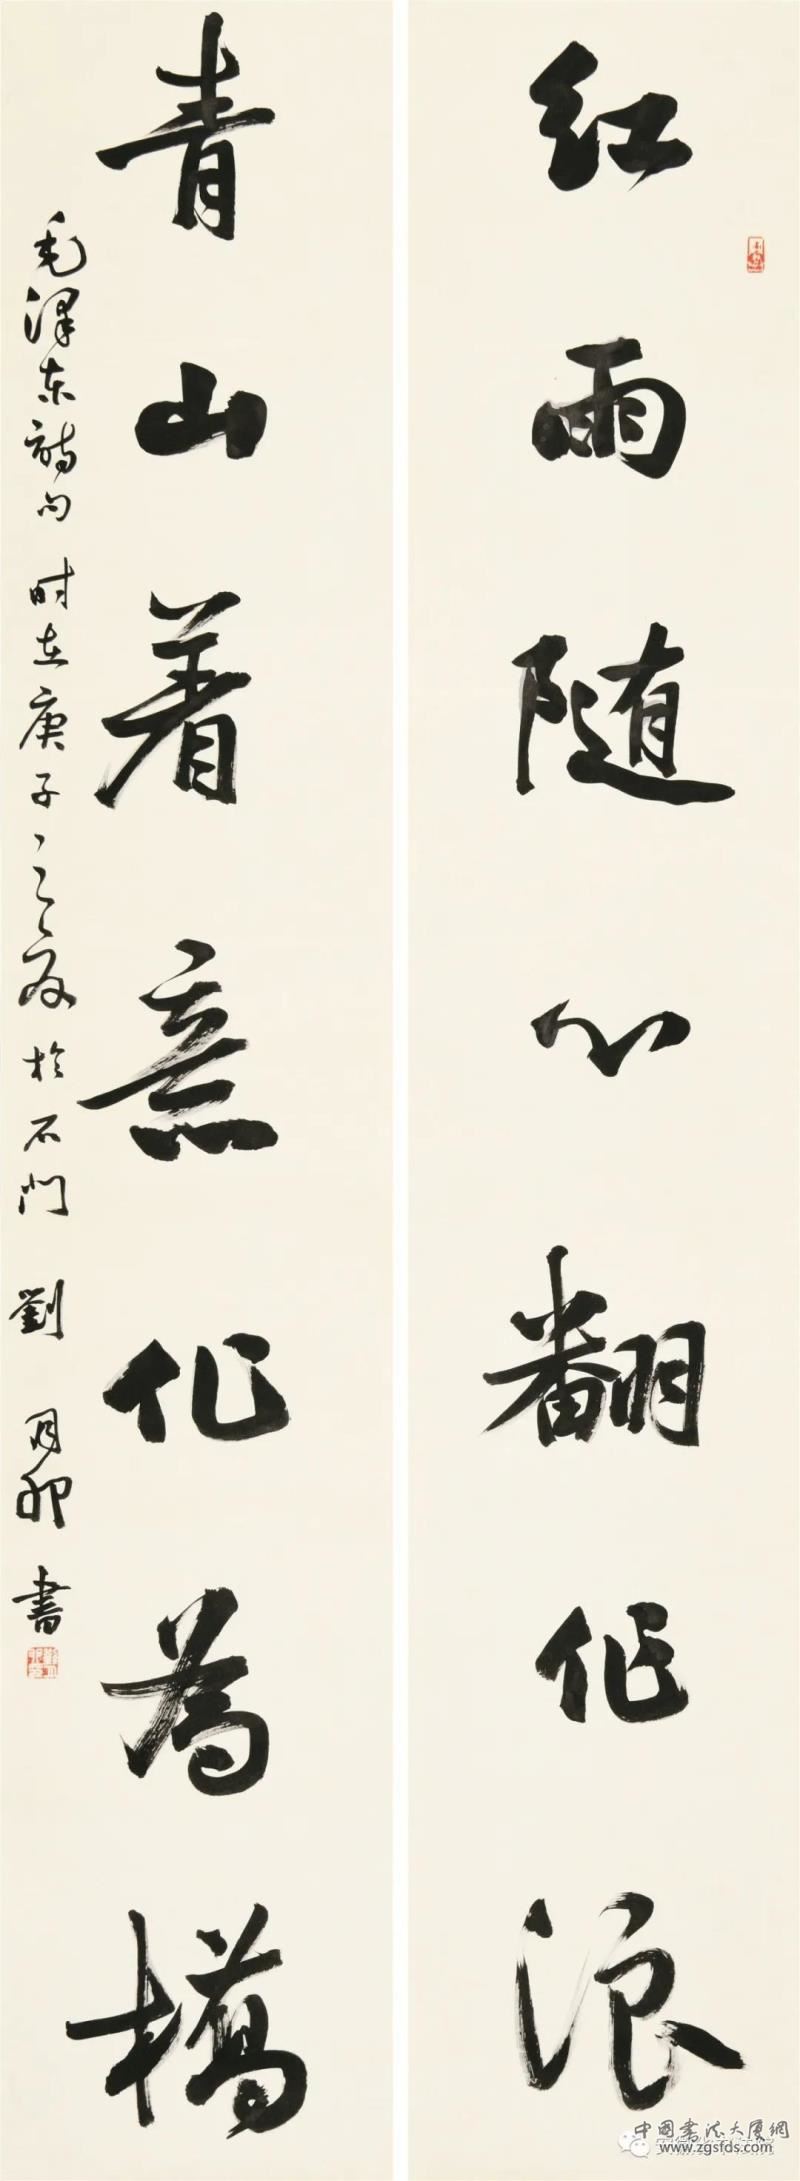 红雨随心翻作浪
青山着意化为橋
毛泽东詩句 时在庚子之夏於石門 劉月卯書
中國書法大厦網
www.zgsfds.com